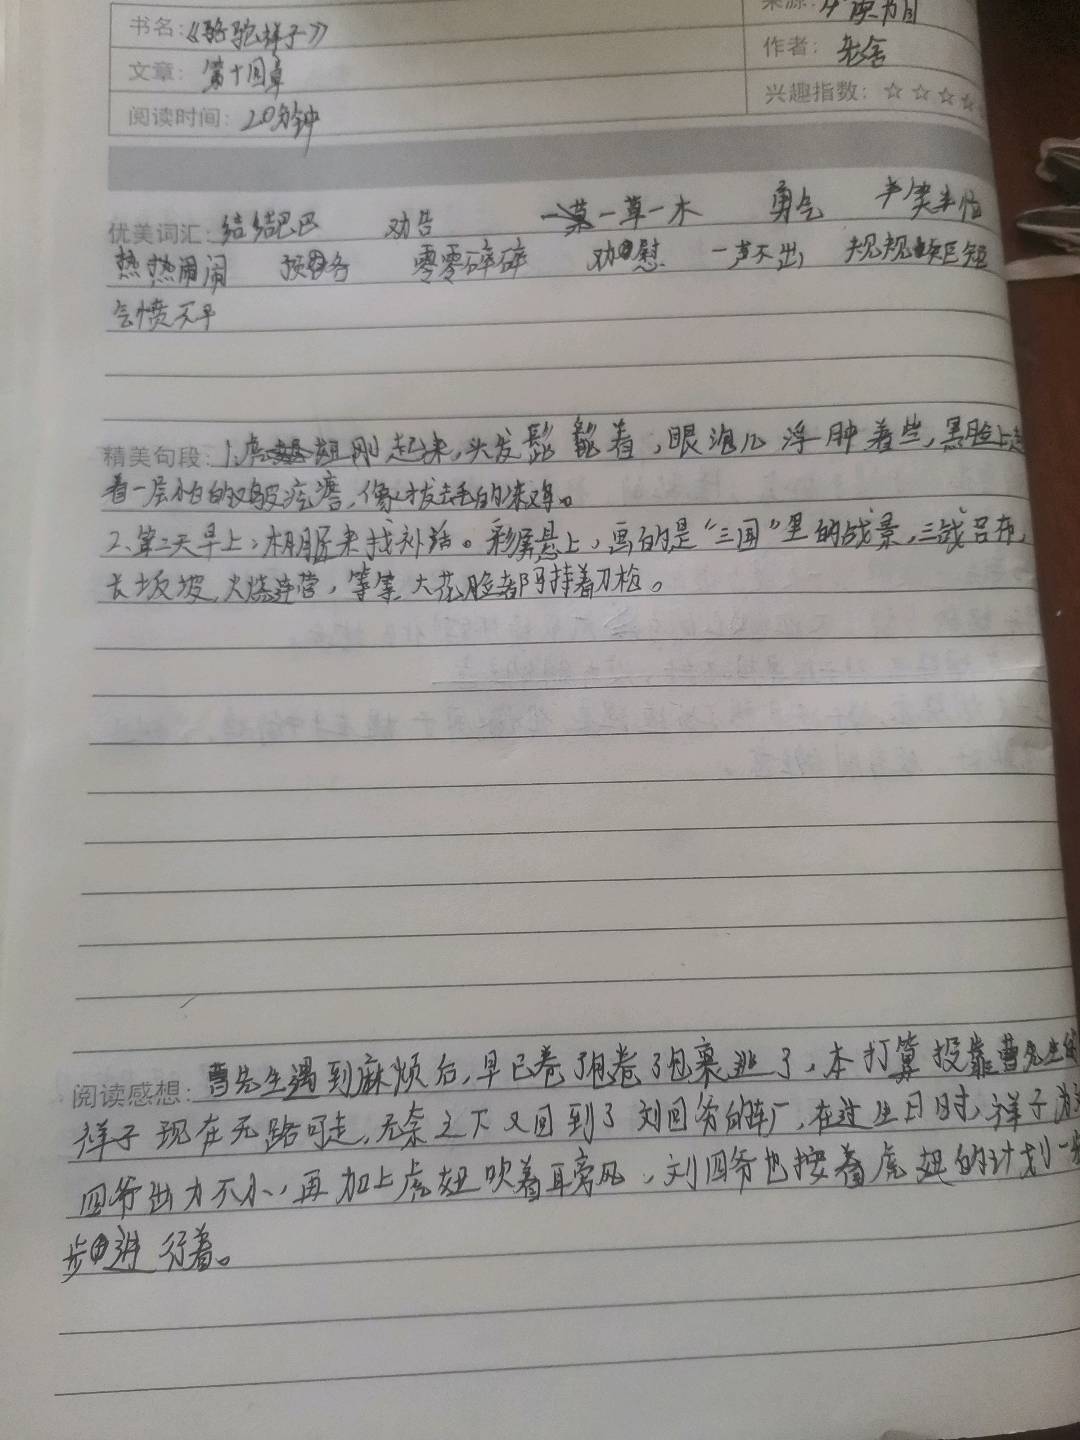 书名：《骆驼祥子》
文章：第十四章
作者：老舍
阅读时间：20分钟
兴趣指数：☆☆☆☆
优美词汇：结结巴巴 劝告 一草一木 勇气 半笑半恼
热热闹闹 预备 零零碎碎 劝慰 一声不出 规规矩矩
气愤不平
精美句段：1.虎妞刚起来，头发髭髭着，眼泡儿浮肿着些，黑脸上起
着一层小白的鸡皮疙瘩，像拔去毛的冻鸡。
2.第二天早上，棚匠来找补活。彩屏悬上，画的是“三国”里的战景，三战吕布，
长坂坡，火烧连营，等等，大花脸都骑马持着刀枪。
阅读感想：曹先生遇到麻烦后，早已卷了包裹逃了，本打算投靠曹先生的
祥子现在无路可走，无奈之下又回到了刘四爷的车厂，在过生日时，祥子为
四爷出力不小，再加上虎妞吹着耳旁风，刘四爷也按着虎妞的计划一步
步进行着。